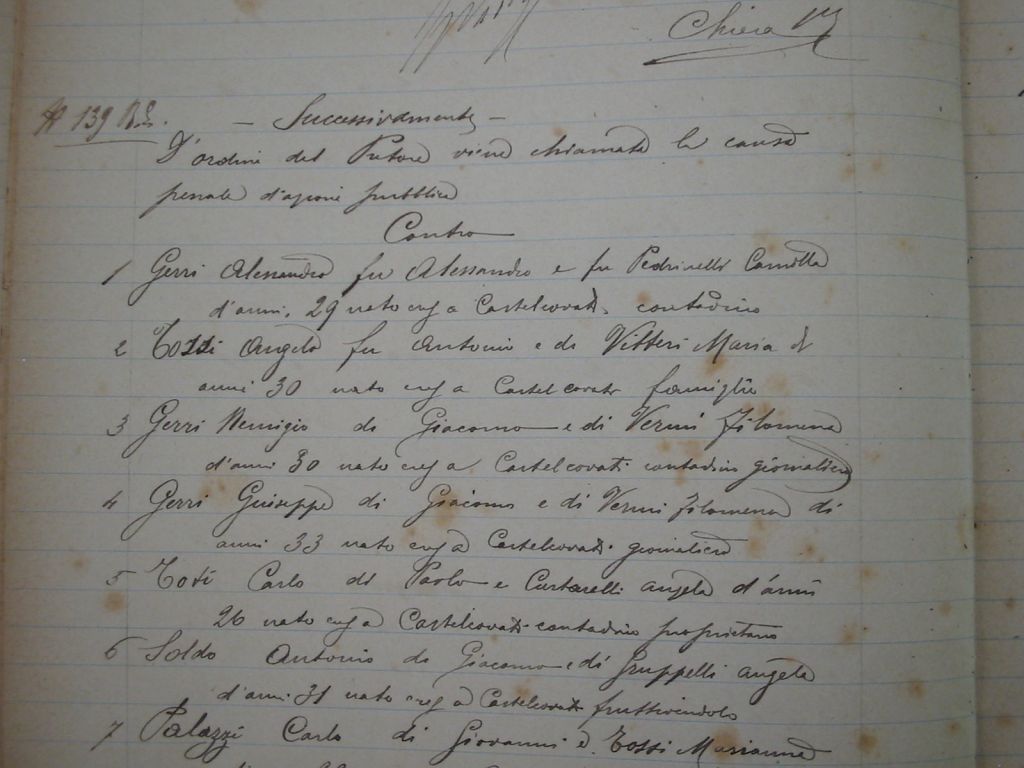 Chiera
N 139 R.G.
— Successivamente —
D'ordine del Pretore viene chiamata la causa
penale d'azione pubblica
Contro
1 Gerri Alessandro fu Alessandro e fu Pedrinelli Camilla
d'anni 29 nato e a Castelcovati contadino
2 Tossi Angelo fu Antonio e di Vitteri Maria di
anni 30 nato e a Castelcovati famiglio
3 Gerri Remigio di Giacomo e di Vermi Filomena
d'anni 30 nato e a Castelcovati contadino giornaliero
4 Gerri Guiseppe di Giacomo e di Vermi Filomena di
anni 33 nato e a Castelcovati giornaliero
5 Carlo di Paolo e Angela d'anni
26 nato e a Castelcovati contadino proprietario
6 Soldo Antonio di Giacomo e di Gruppelli Angela
d'anni 31 nato e a Castelcovati fruttivendolo
7 Palazzi Carlo di Giovanni e Tossi Marianna